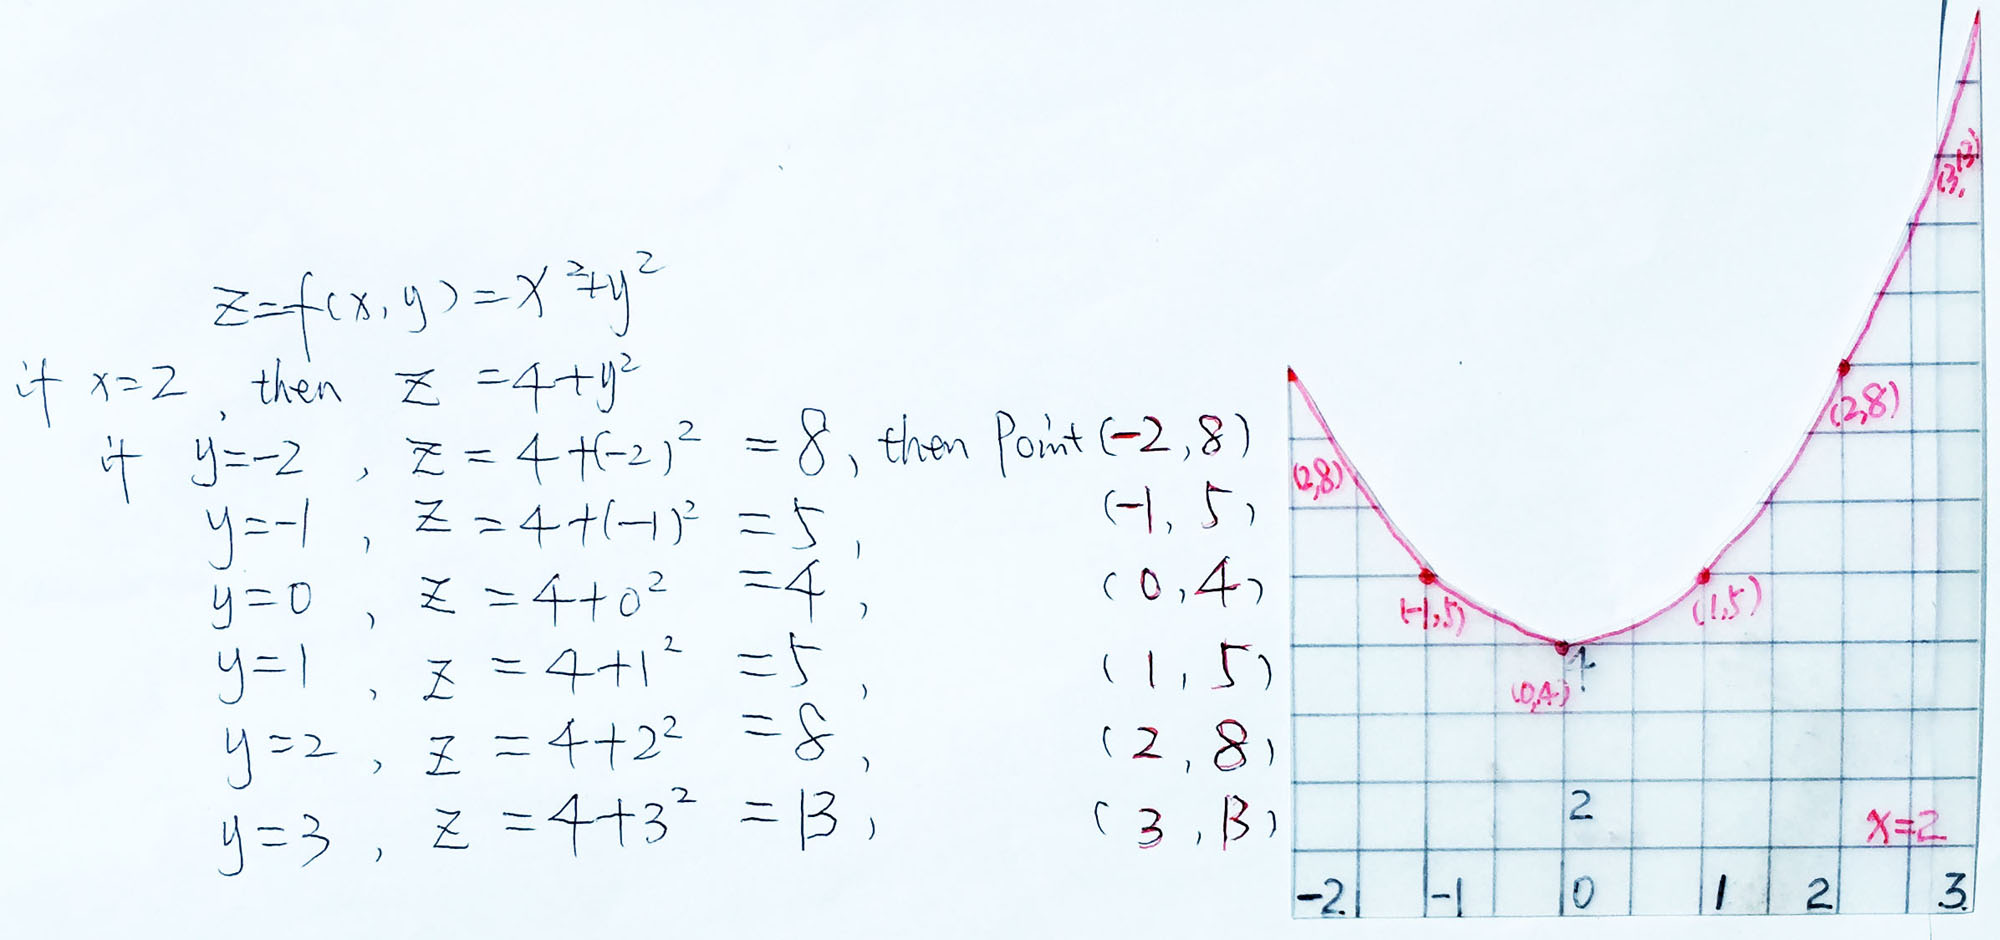 z=f(x,y)=x²+y²
if x=2, then z =4+y²
if y=-2, z=4+(-2)² =8, then Point (-2,8)
y=-1, z=4+(-1)² =5, (-1,5)
y=0, z=4+0² =4, (0,4)
y=1, z=4+1² =5, (1,5)
y=2, z=4+2² =8, (2,8)
y=3, z=4+3² =13, (3,13)
(3,13)
(2,8)
(2,8)
(-1,5)
(1,5)
4
(0,4)
2
x=2
-2 -1 0 1 2 3